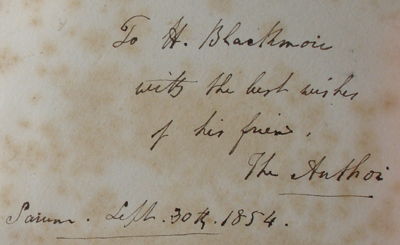 To H. Blackmore
with the best wishes
of his friend.
The Author
Sarum. Sept. 30th. 1854.